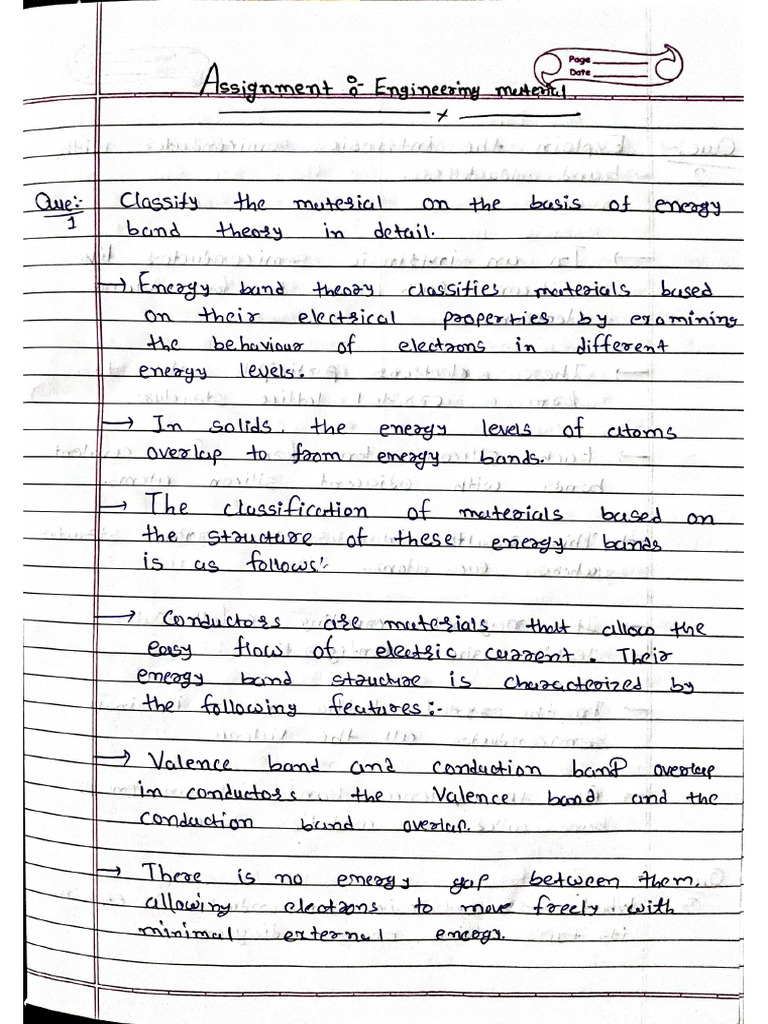 Page
Date
Assignment :- Engineering material
x
Que:- Classify the material on the basis of energy
1
band theory in detail.
→ Energy band theory classifies materials based
on their electrical properties by examining
the behaviour of electrons in different
energy levels.
→ In solids. the energy levels of atoms
overlap to from energy bands.
→ The classification of materials based on
the structure of these energy bands
is as follows:-
→ Conductors are materials that allow the
easy flow of electric current. Their
energy band structure is characterized by
the following features:-
→ Valence band and conduction band overlap
in conductors the Valence band and the
conduction band overlap.
→ There is no energy gap between them,
allowing electrons to move freely with
minimal external energy.